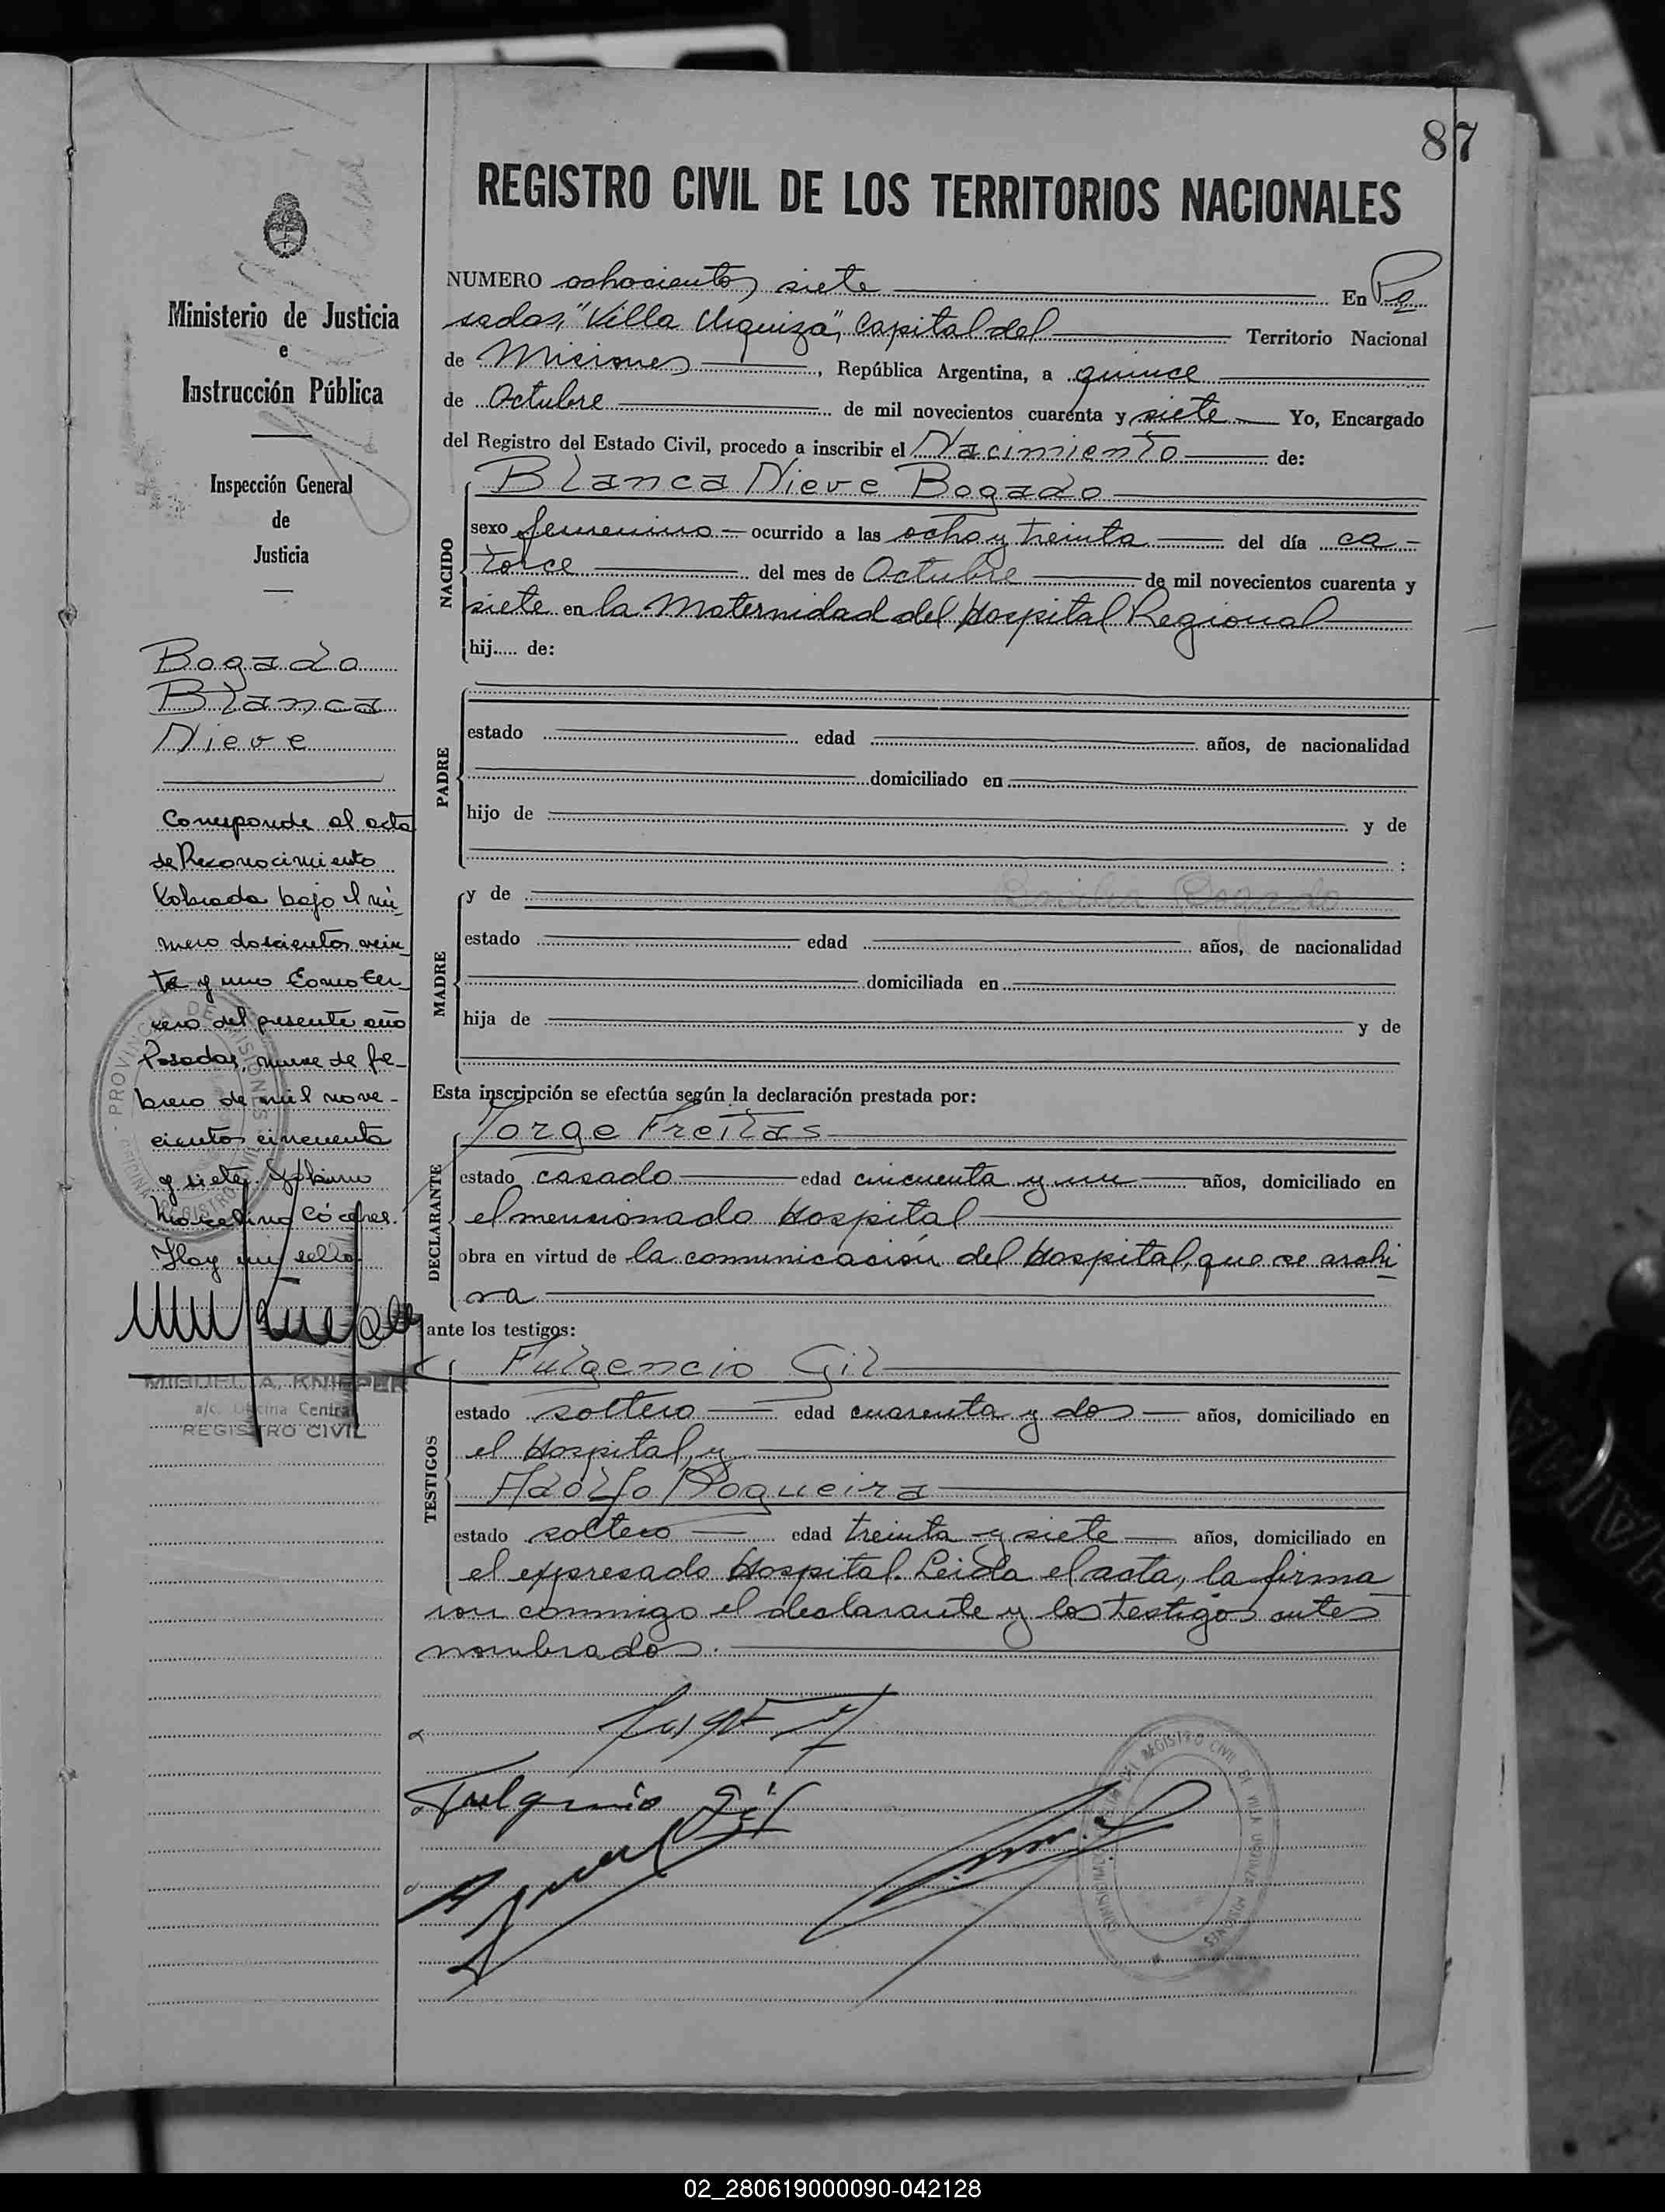 87
REGISTRO CIVIL DE LOS TERRITORIOS NACIONALES
Ministerio de Justicia
e
Instrucción Pública
Inspección General
de
Justicia
Bogado
Blanca
Nieve
Corresponde al acta
de Reconocimiento
labrada bajo el nú-
mero doscientos vein
te y uno tomo ter-
cero del presente año
Posadas, nueve de fe-
brero de mil nove-
cientos cincuenta
y siete.
Marcelino Cáceres.
Hay un sello
MIGUEL A. KNIPPER
a/c. Oficina Central
REGISTRO CIVIL
PROVINCIA DE MISIONES
NUMERO ochocientos siete En Po
sadas, "Villa Urquiza", Capital del Territorio Nacional
de Misiones, República Argentina, a quince
de Octubre de mil novecientos cuarenta y siete Yo, Encargado
del Registro del Estado Civil, procedo a inscribir el Nacimiento de:
NACIDO
Blanca Nieve Bogado
sexo femenino ocurrido a las ocho y treinta del día ca-
torce del mes de Octubre de mil novecientos cuarenta y
siete en la Maternidad del Hospital Regional
hij..... de:
PADRE
estado edad años, de nacionalidad
domiciliado en
hijo de y de
;
MADRE
y de Bogado
estado edad años, de nacionalidad
domiciliada en
hija de y de
Esta inscripción se efectúa según la declaración prestada por:
DECLARANTE
Jorge Freitas
estado casado edad cincuenta y un años, domiciliado en
el mencionado Hospital
obra en virtud de la comunicación del Hospital, que se archi
va
ante los testigos:
TESTIGOS
Fulgencio Gil
estado soltero edad cuarenta y dos años, domiciliado en
el Hospital, y
Adolfo Nogueira
estado soltero edad treinta y siete años, domiciliado en
el expresado Hospital. Leída el acta, la firma
ron conmigo el declarante y los testigos antes
nombrados.
Fulgencio Gil
REGISTRO CIVIL DE VILLA URQUIZA MISIONES
02_280619000090-042128